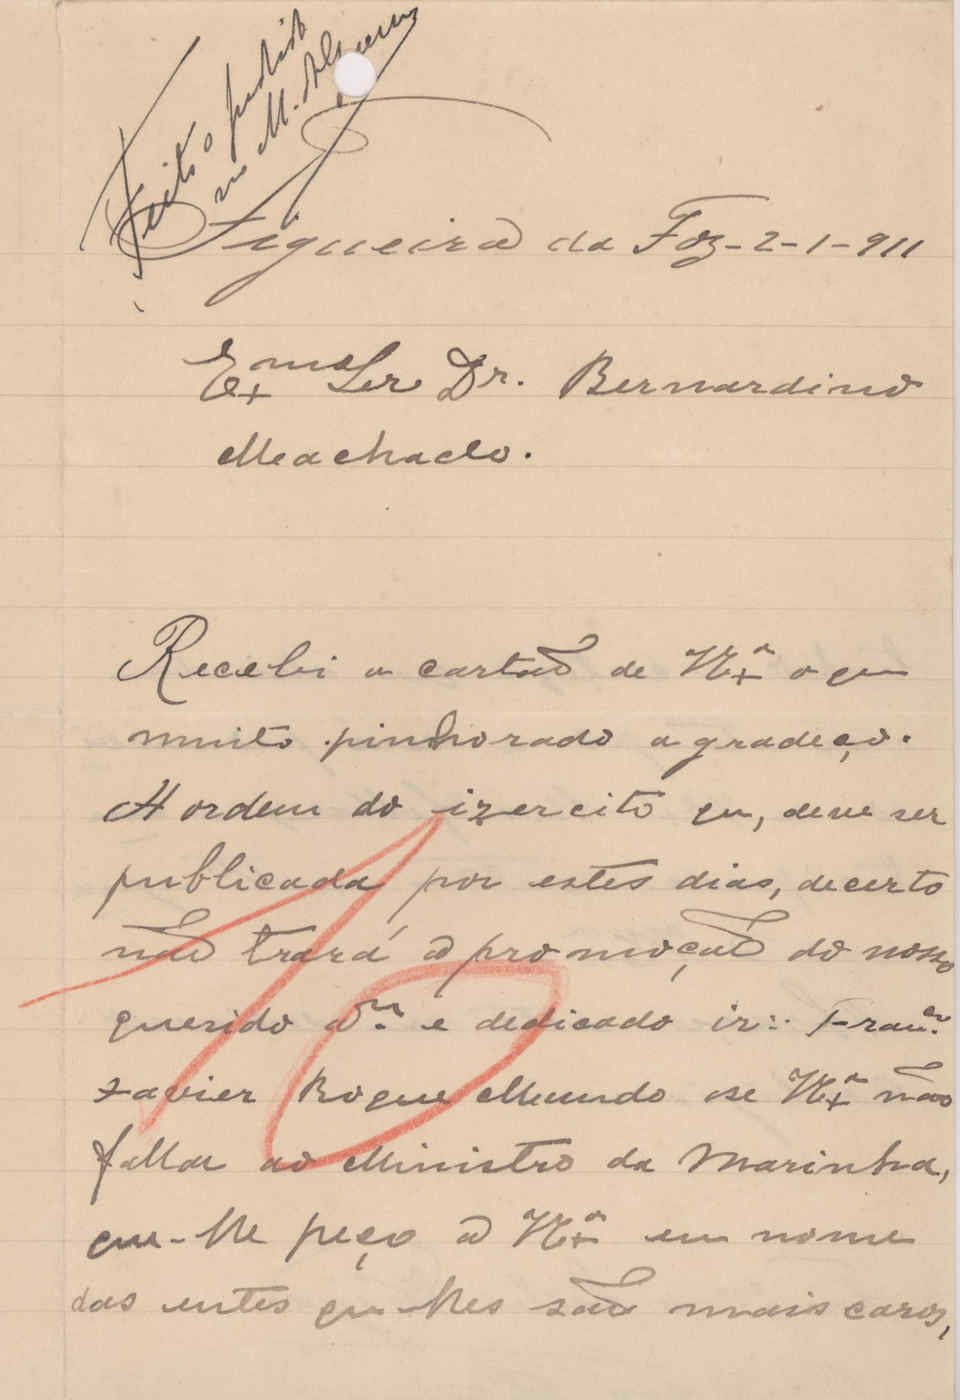 Feito o pedido
no M.
Figueira da Foz - 2 - 1 - 911
Exmo Snr Dr. Bernardino
Machado.
Recebi o cartão de V Exª o que
muito pinhorado agradeço.
A ordem do izercito que, deve ser
publicada por estes dias, decerto
não trará a promoção do nosso
querido am.º e dedicado ir∴ Franco.
Xavier Roque Mundo se V Exª não
fallar ao Ministro da Marinha,
eu-lhe peço a V Exª em nome
das entes que lhes são mais caros,